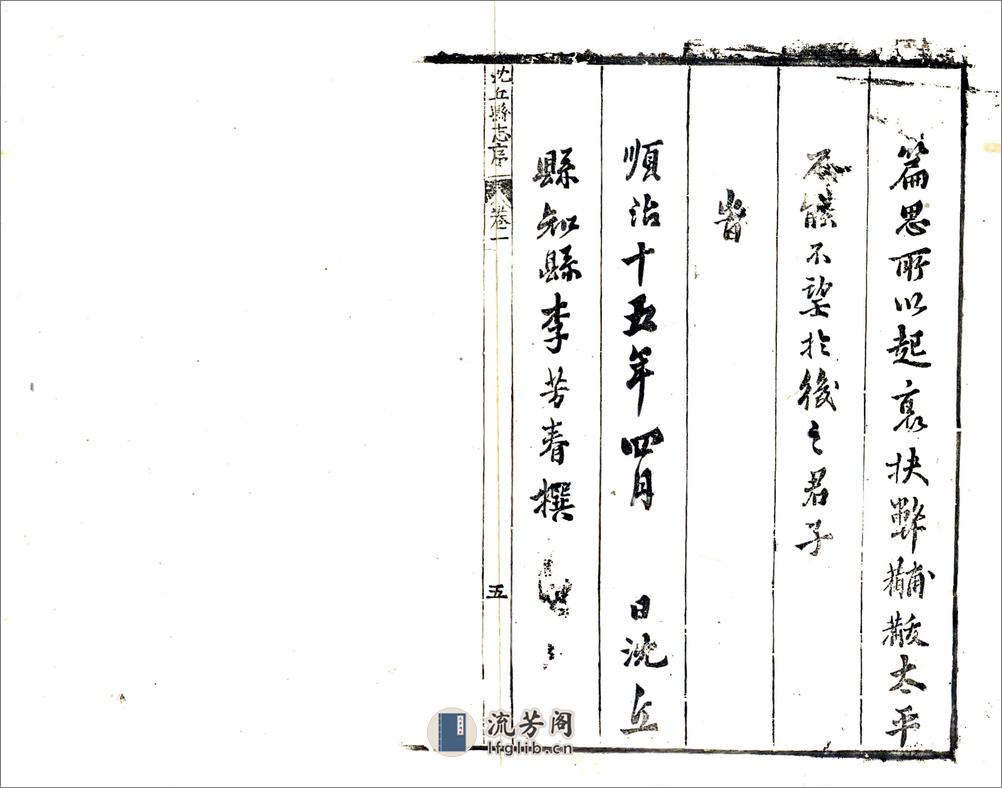 篇思所以起衰扶弊黼黻太平
不能不望於後之君子
旹
順治十五年四月 日沈丘
縣知縣李芳春撰
沈丘縣志序 卷一 五
流芳阁
lfglib.cn